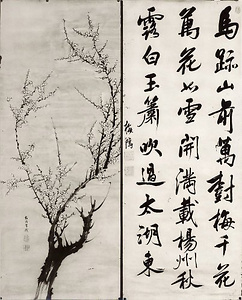 馬蹄山前萬樹梅千花
萬花如雪開滿載楊州秋
露白玉簫吹過太湖東